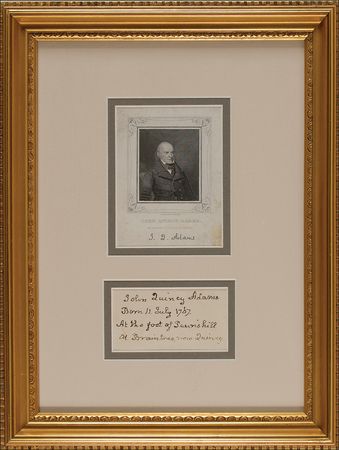 JOHN QUINCY ADAMS.
J. Q. Adams
John Quincy Adams
Born 11. July 1767.
At the foot of
At Braintree, now Quincy.